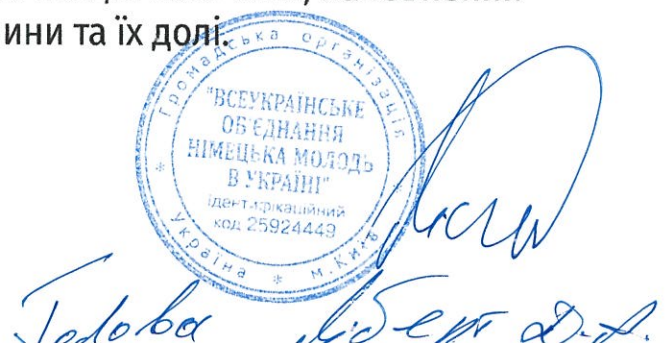 ини та їх долі.
Громадська організація
"ВСЕУКРАЇНСЬКЕ
ОБ'ЄДНАННЯ
НІМЕЦЬКА МОЛОДЬ
В УКРАЇНІ"
ідентифікаційний
код 25924449
Україна * м. Київ *
Голова